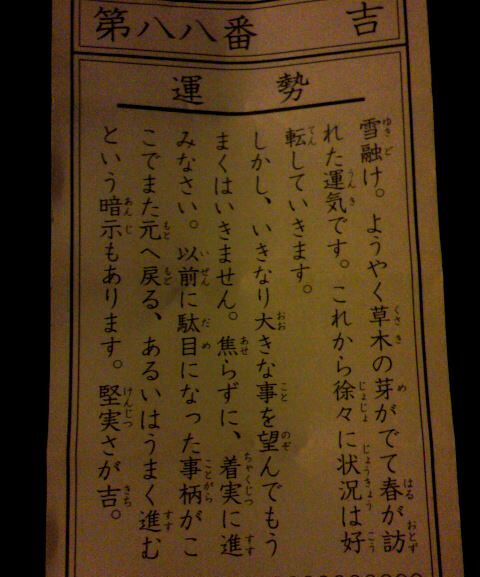 第八八番 吉
運勢
雪融け。ようやく草木の芽がでて春が訪
れた運気です。これから徐々に状況は好
転していきます。
しかし、いきなり大きな事を望んでもう
まくはいきません。焦らずに、着実に進
みなさい。以前に駄目になった事柄がこ
こでまた元へ戻る、あるいはうまく進む
という暗示もあります。堅実さが吉。